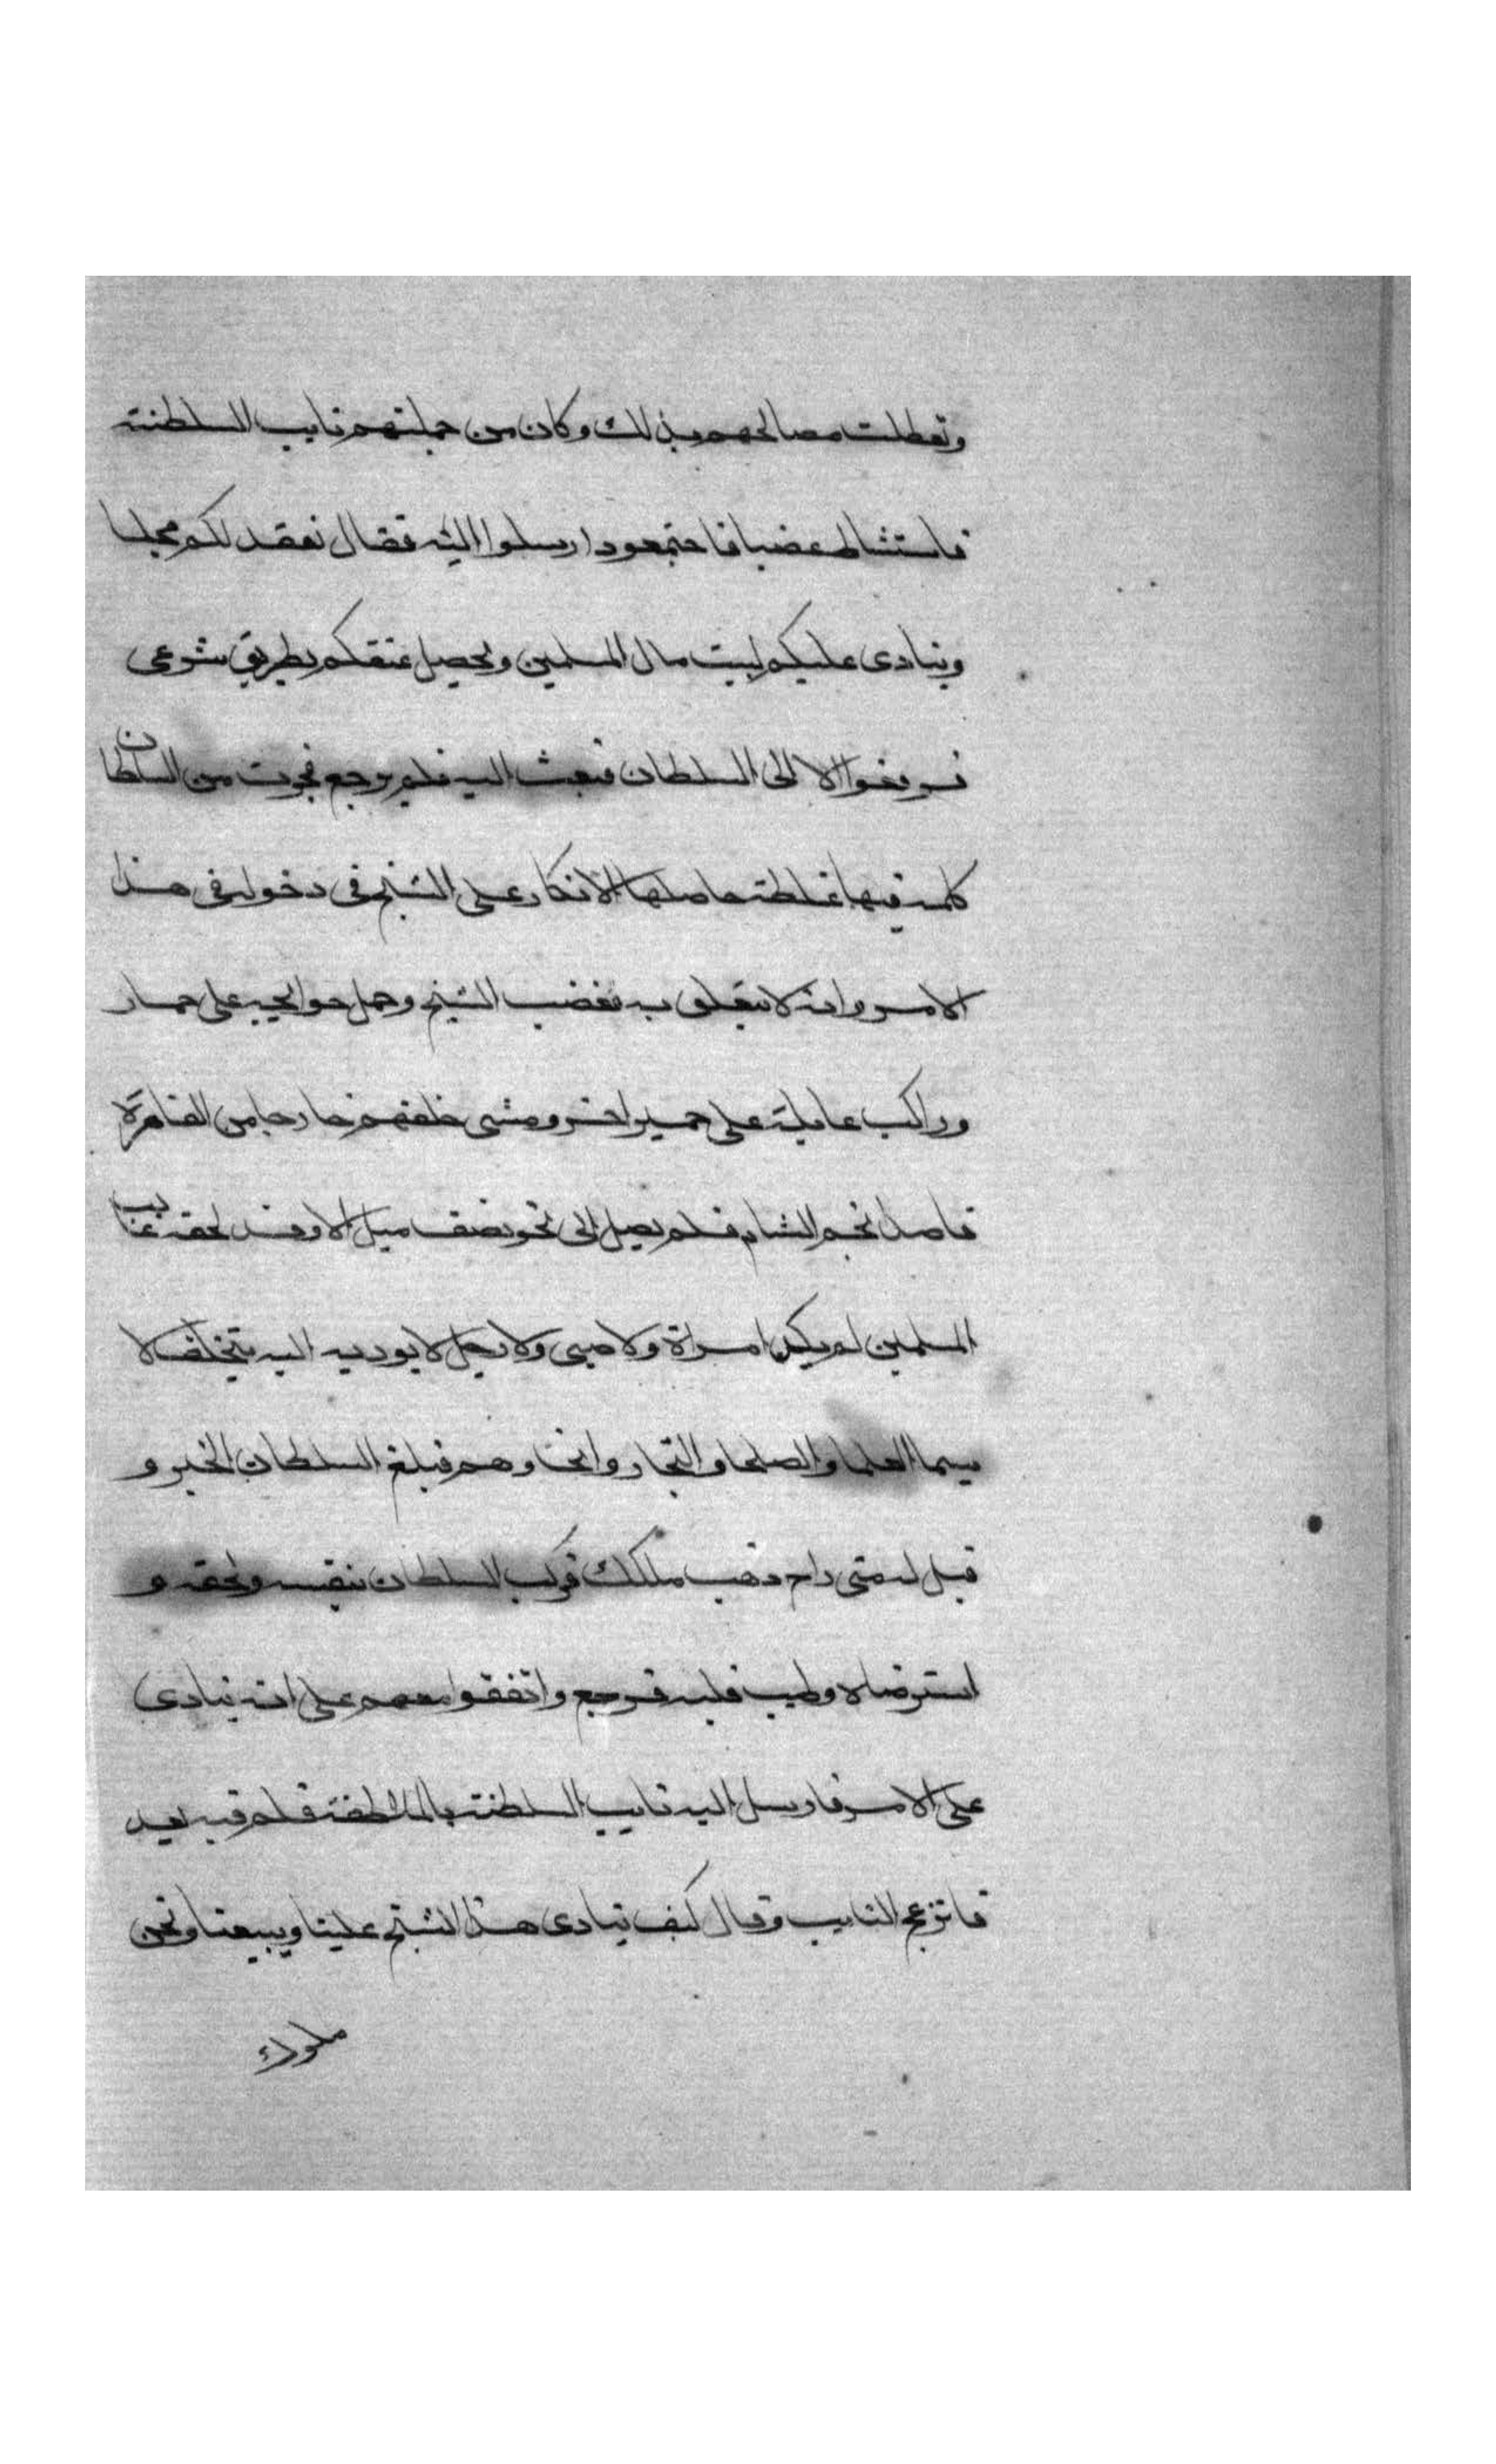 وتعطلت مصالحهم بذلك وكان من جملتهم نايب السلطنة
فاستشاط غضبا فاجتمعوا وارسلوا اليه فقال نعقد لكم مجلسا
وينادى عليكم لبيت مال المسلمين ويحصل عتقكم بطريق شرعى
فرفعوا الا الى السلطان فبعث اليه فلم يرجع فجرت من السلطان
كلمة فيها غلظة حاصلها الانكار على الشيخ فى دخوله فى هذا
الامر وانه لا يتعلق به فغضب الشيخ وحمل حوايجه على حمار
وراكب عايلته على حمير اخر ومشى خلفهم خارجا من القاهرة
قاصدا نحو الشام فلم يصل الى نحو نصف ميل الا وقد لحقه غالب
المسلمين لم يكن امراة ولا صبى ولا رجل لا يوديه اليه يتخلف لا
سيما العلما والصلحا والتجار وانحاوهم فبلغ السلطان الخبر و
قيل له متى راح ذهب ملكك فركب السلطان بنفسه ولحقه و
استرضاه وطيب قلبه فرجع واتفقوا معهم على انه ينادى
على الامر فارسل اليه نايب السلطنة بالملاطفة فلم يعيد
فانزعج النايب وقال كيف ينادى هذا الشيخ علينا ويبيعنا ونحن
ملوك